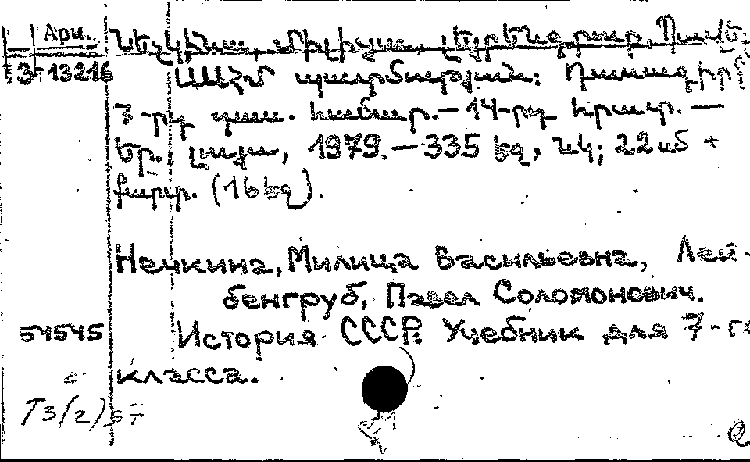 Арм. Նեչկինա, Միլիցա, Լեյբենգրուբ, Պավել.
3-13216 ՍՍՀՄ պատմություն: Դասագիրք
7-րդ դաս. համար.— 14-րդ հրատ. —
Եր., Լույս, 1979.— 335 էջ, նկ; 22 սմ +
քարտ. (16 էջ).
Нечкина, Милица Васильевна, Лей-
бенгруб, Павел Соломонович.
54545 История СССР. Учебник для 7-го
класса.
Т3(2)